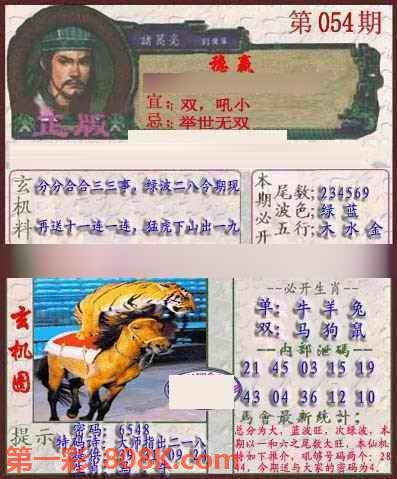 第054期
諸葛亮
稳赢
宜：双，吼小
忌：举世无双
正版
玄机料
分分合合三三事，绿波二八今期现
再送十一连一连，猛虎下山出一九
本期必开
尾数：234569
波色：绿 蓝
五行：木 水 金
玄机图
--必开生肖--
单：牛 羊 兔
双：马 狗 鼠
--内部泄码--
21 45 03 15 19
43 04 36 12 10
馬會最新統計：
总分为大，蓝波旺，次绿波，本
期以一和六之尾数大旺，本仙机
4，今期送与大家的密码为4.
提示
密码：6548
特码诗：大师指出二一八
39 21 09 24
第一彩-808K.com